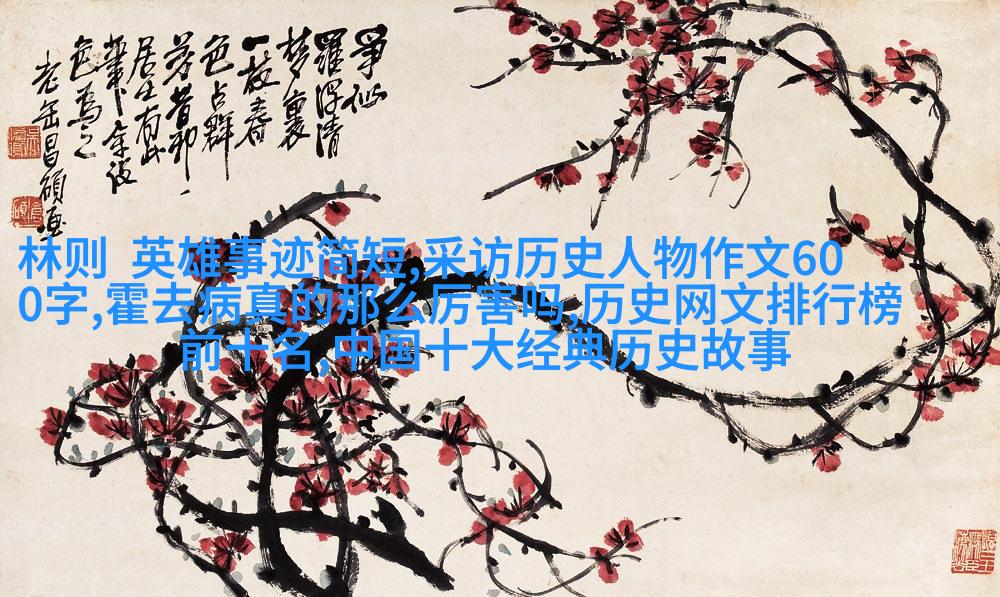 爭似
羅浮清
梦裏
一枝春
色占群
芳昔邪
居士有此
色為之
老缶昌碩
林则 英雄事迹简短,采访历史人物作文60
0字,霍去病真的那么厉害吗,历史网文排行榜
前十名,中国十大经典历史故事